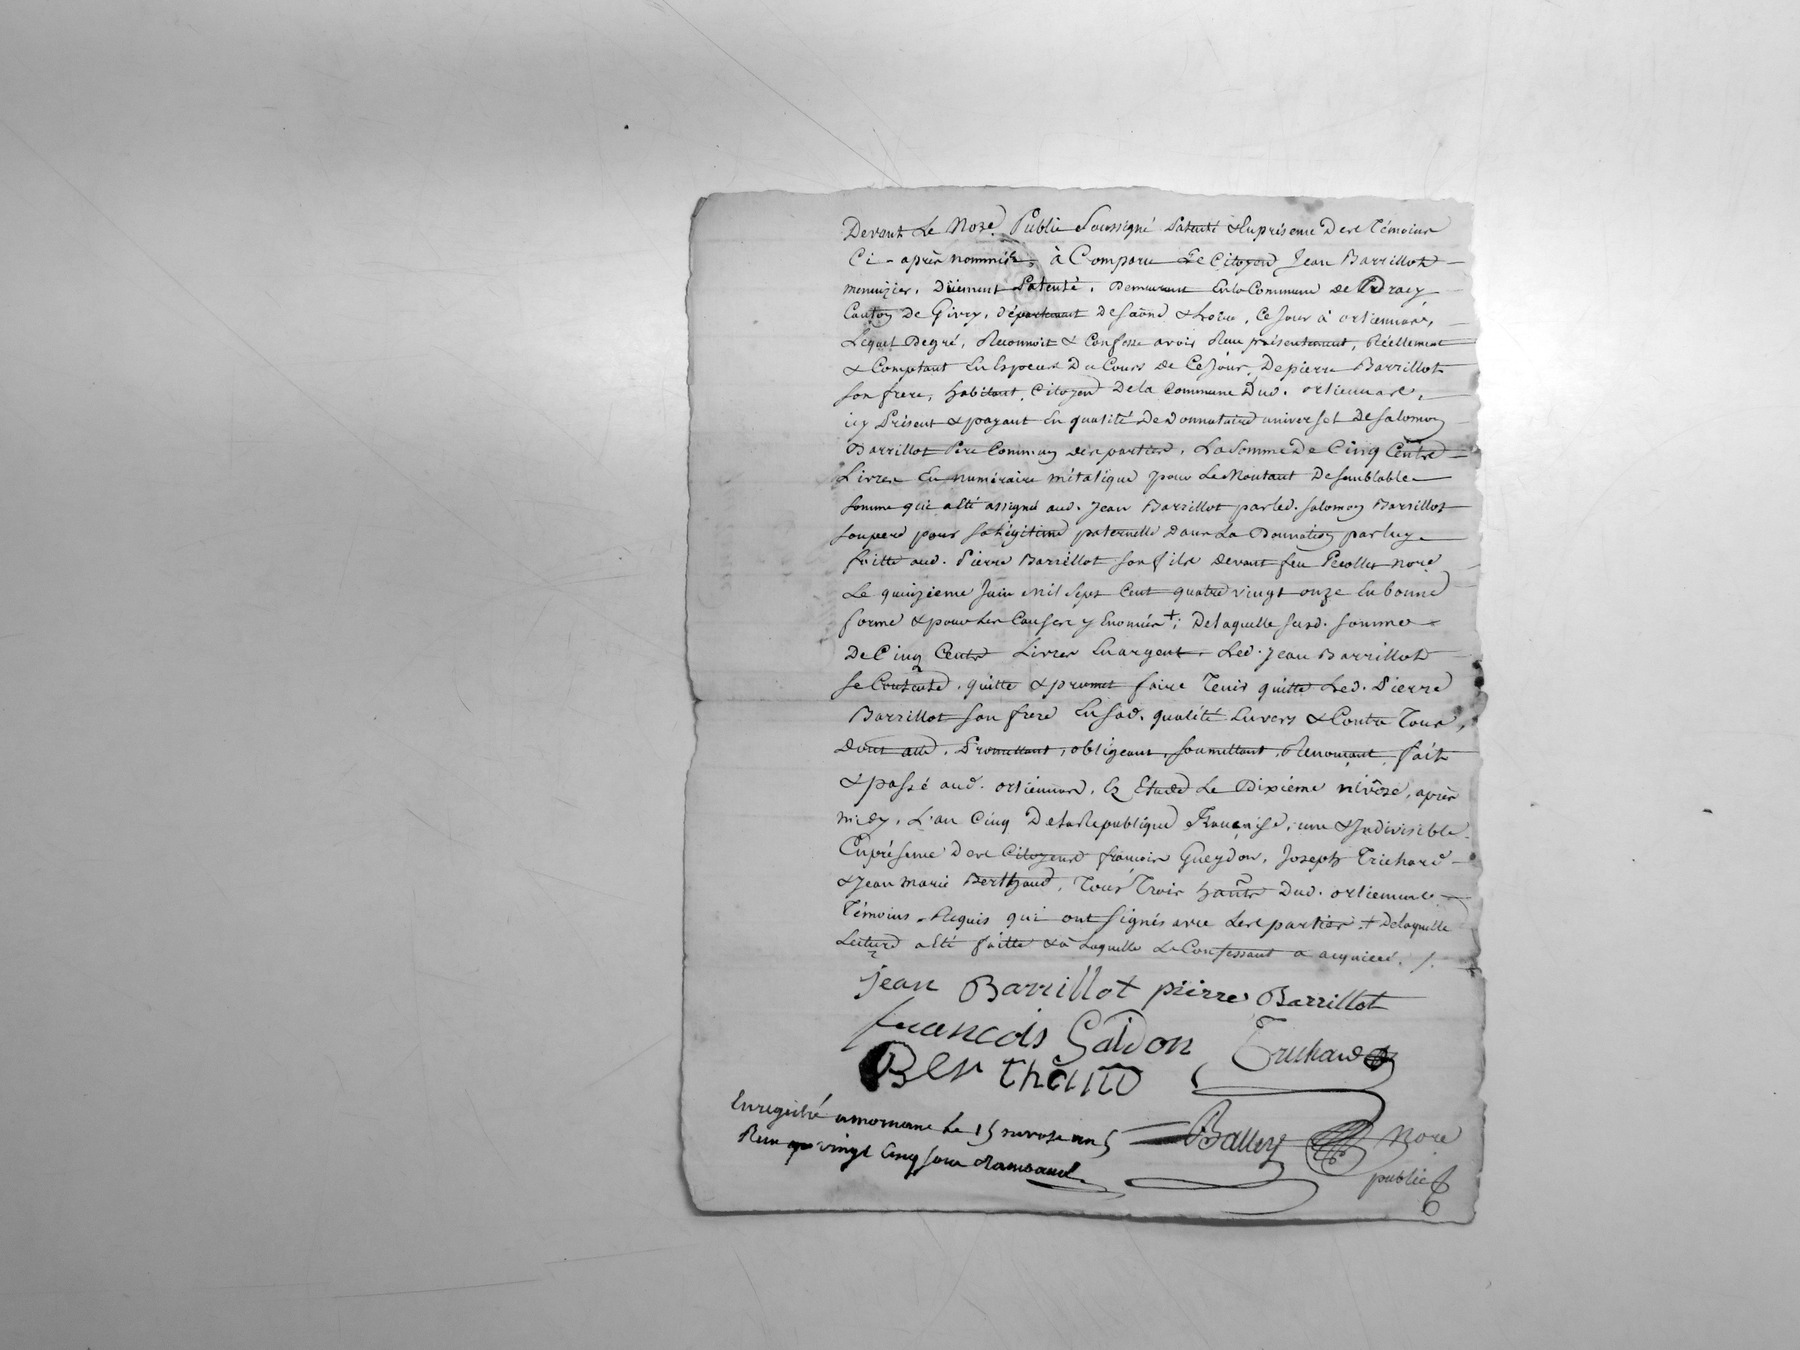 Devant Le Nore Public Soussigné Patenté & En présence Des Témoins
Ci-après nommés, à Comparu Le Citoyen Jean Barrillot
menuizier, Düement Patenté, Demeurant En la Commune de Dracy
Canton De Givry, Département De Saône & Loire, Ce Jour à orliennas,
Lequel De gré, Reconnoit & Confesse avoir Reçu présentement, Réellement
& Comptant En Especes Du Cours de Ce Jour, De pierre Barrillot
son frere, habitant, Citoyen De la Commune Dud. orliennas,
icy Présent & payant En qualité De Donnataire universel De Salomon
Barrillot Père Commun des parties, La Somme De Cinq Cents
Livres En numéraire métalique pour Le Montant De semblable
somme qui a Eté assigné aud. Jean Barrillot par led. Salomon Barrillot
son pere pour sa Légitime paternelle Dans La Donnation par luy
faitte aud. Pierre Barrillot son fils devant feu Pecollet nore
Le quinzieme Juin mil Sept Cent quatre vingt onze En bonne
forme & pour Les Causes y Enoncées +; De laquelle susd. somme
De Cinq Cents Livres En argent, Led. Jean Barrillot
se Contente, quitte & promet faire Tenir quitte Led. Pierre
Barrillot son frere En sad. qualité Envers & Contre Tous,
Dont acte, Promettant, obligeant, soumettant, Renonçant, fait
& passé aud. orliennas, Ez Etude Le Dixième nivôse, après
midy, L'an Cinq De la Republique Française, une & Indivisible
En présence Des Citoyens françois Gueydon, Joseph Trichard
& Jean Marie Berthaud, Tous Trois hants Dud. orliennas
Témoins Requis qui ont signés avec Les parties + De laquelle
Lecture a Eté faitte & à Laquelle Le Confessant a acquiécé. /.
jean Barrillot pierre Barrillot
francois Gaidon Trichard
Berthaud
Enregistré a mornant le 15 nivose an 5 Balley Nore
Reçu vingt Cinq sous public